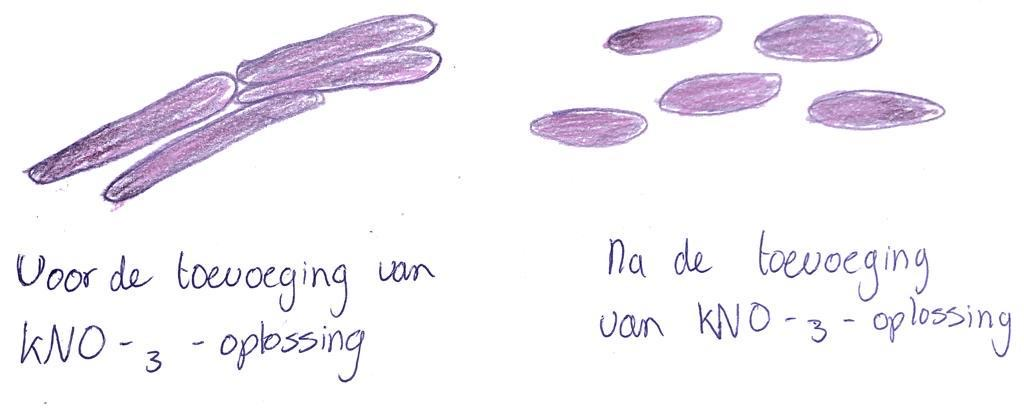 Voor de toevoeging van
kNO-3-oplossing
Na de toevoeging
van kNO-3-oplossing